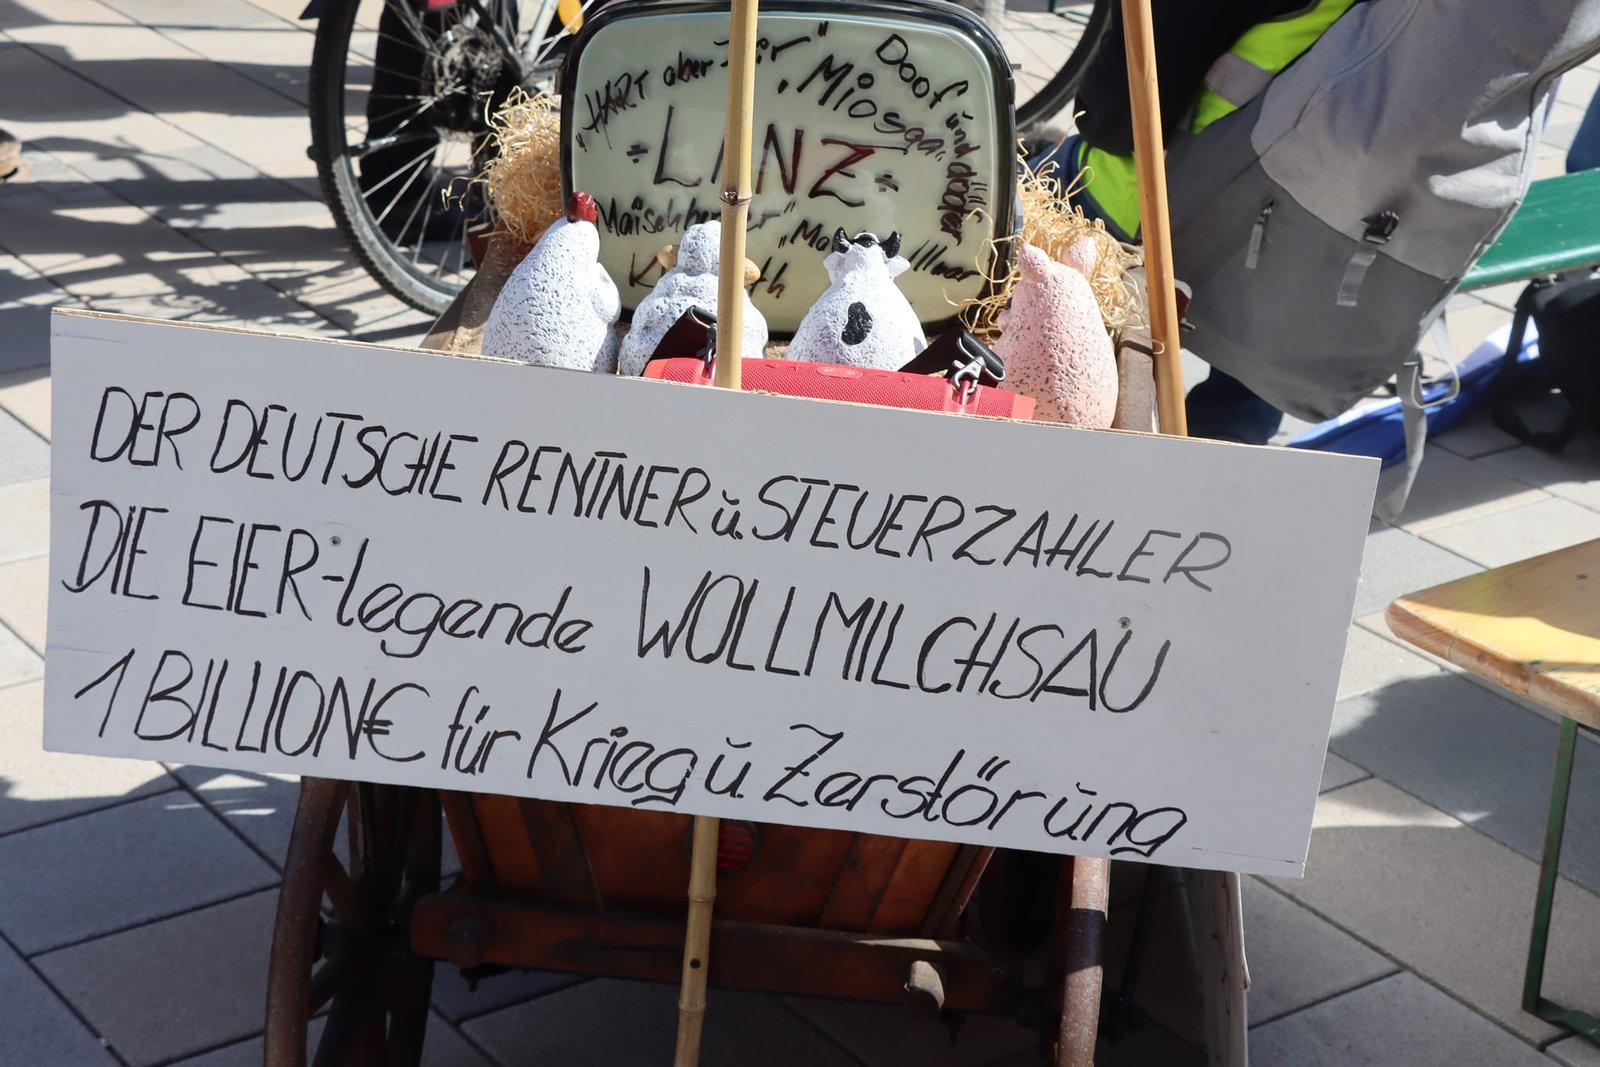 "HART aber
Doof und döofer
"Miosga"
LANZ
Maischberger"
DER DEUTSCHE RENTNER u. STEUERZAHLER
DIE EIER-legende WOLLMILCHSAU
1 BILLION€ für Krieg u. Zerstörung